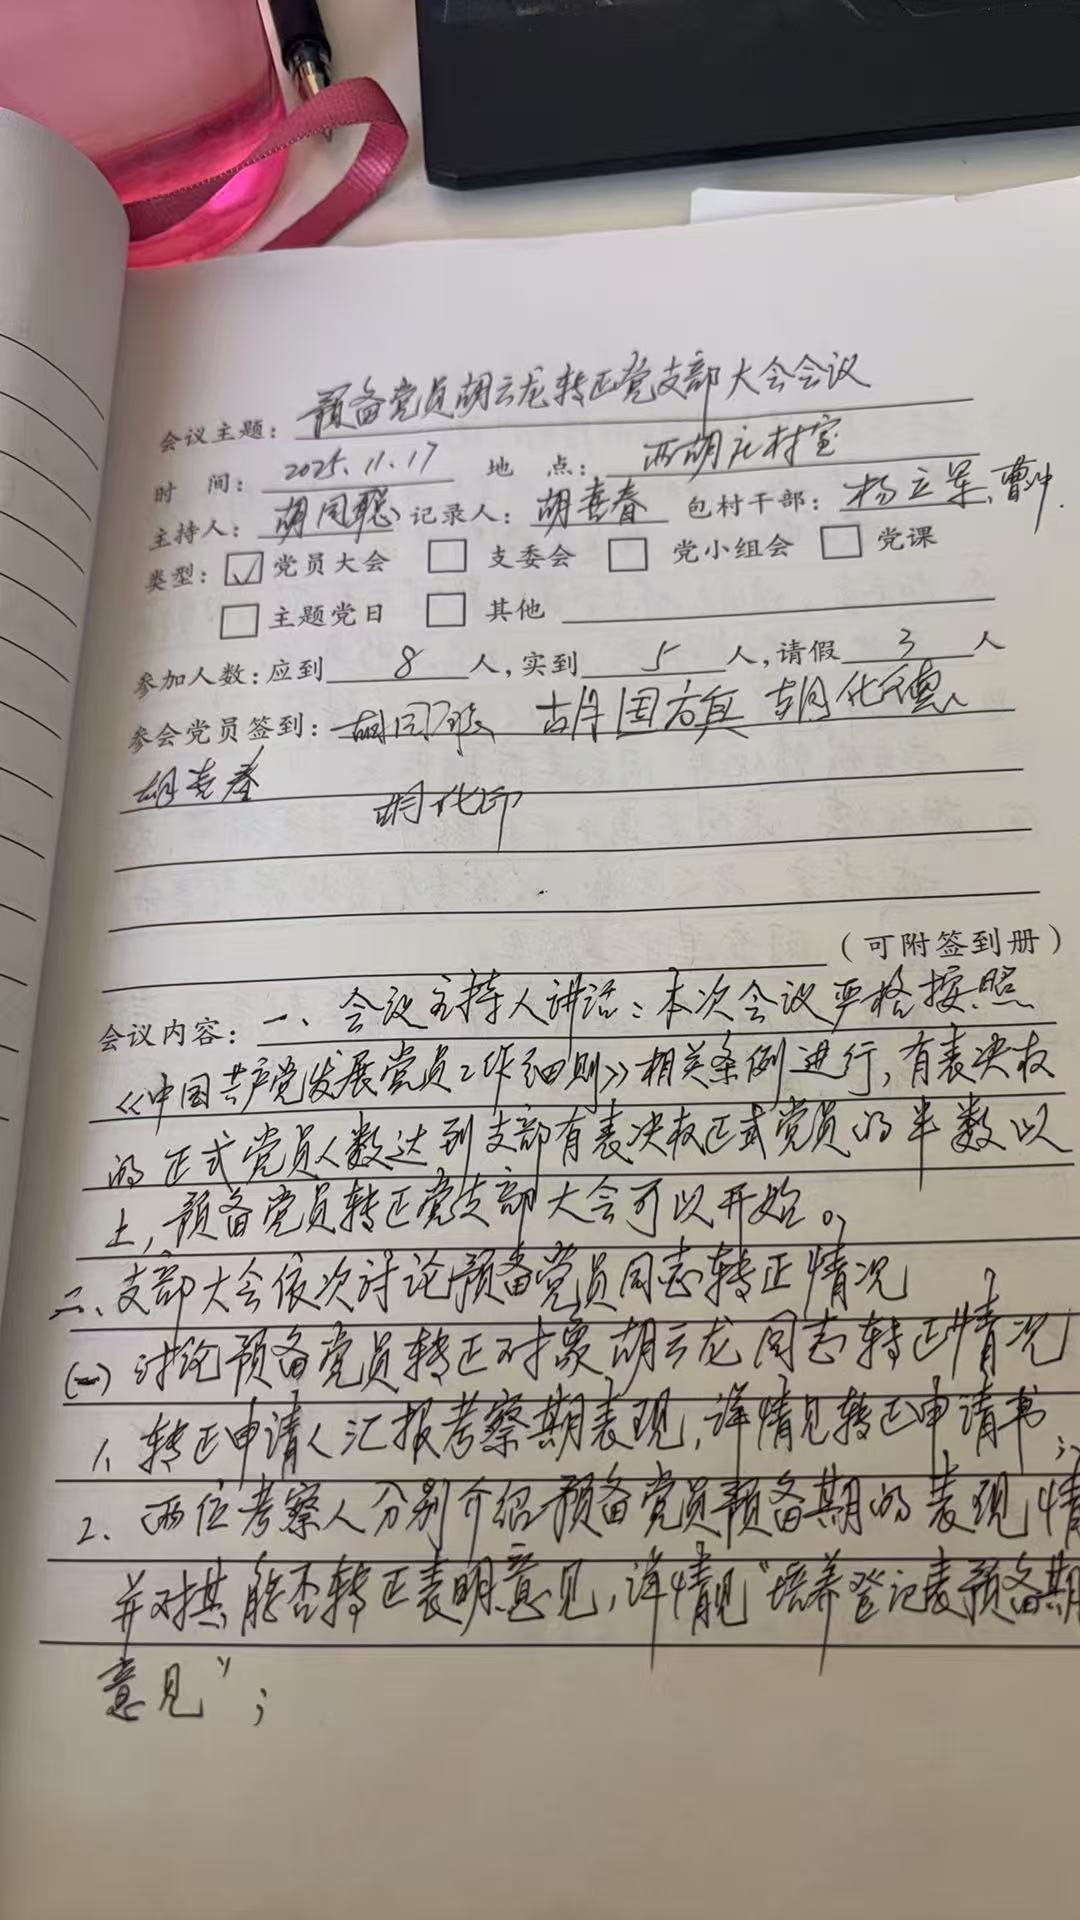 会议主题：预备党员胡云龙转正党支部大会会议
时 间：2025.11.17 地 点：西胡庄村室
主持人：胡同聪 记录人：胡喜春 包村干部：杨立军、曹冲
类型：☑党员大会 □支委会 □党小组会 □党课
□主题党日 □其他
参加人数：应到 8 人，实到 5 人，请假 3 人
参会党员签到：胡同聪 胡国 胡化德
胡喜春 胡化印
（可附签到册）
会议内容：一、会议主持人讲话：本次会议严格按照
《中国共产党发展党员工作细则》相关条例进行，有表决权
的正式党员人数达到支部有表决权正式党员的半数以
上，预备党员转正党支部大会可以开始。
二、支部大会依次讨论预备党员同志转正情况
(一)讨论预备党员转正对象胡云龙同志转正情况
1、转正申请人汇报考察期表现，详情见转正申请书；
2、两位考察人分别介绍预备党员预备期的表现情
并对其能否转正表明意见，详情见“培养登记表预备期
意见”；